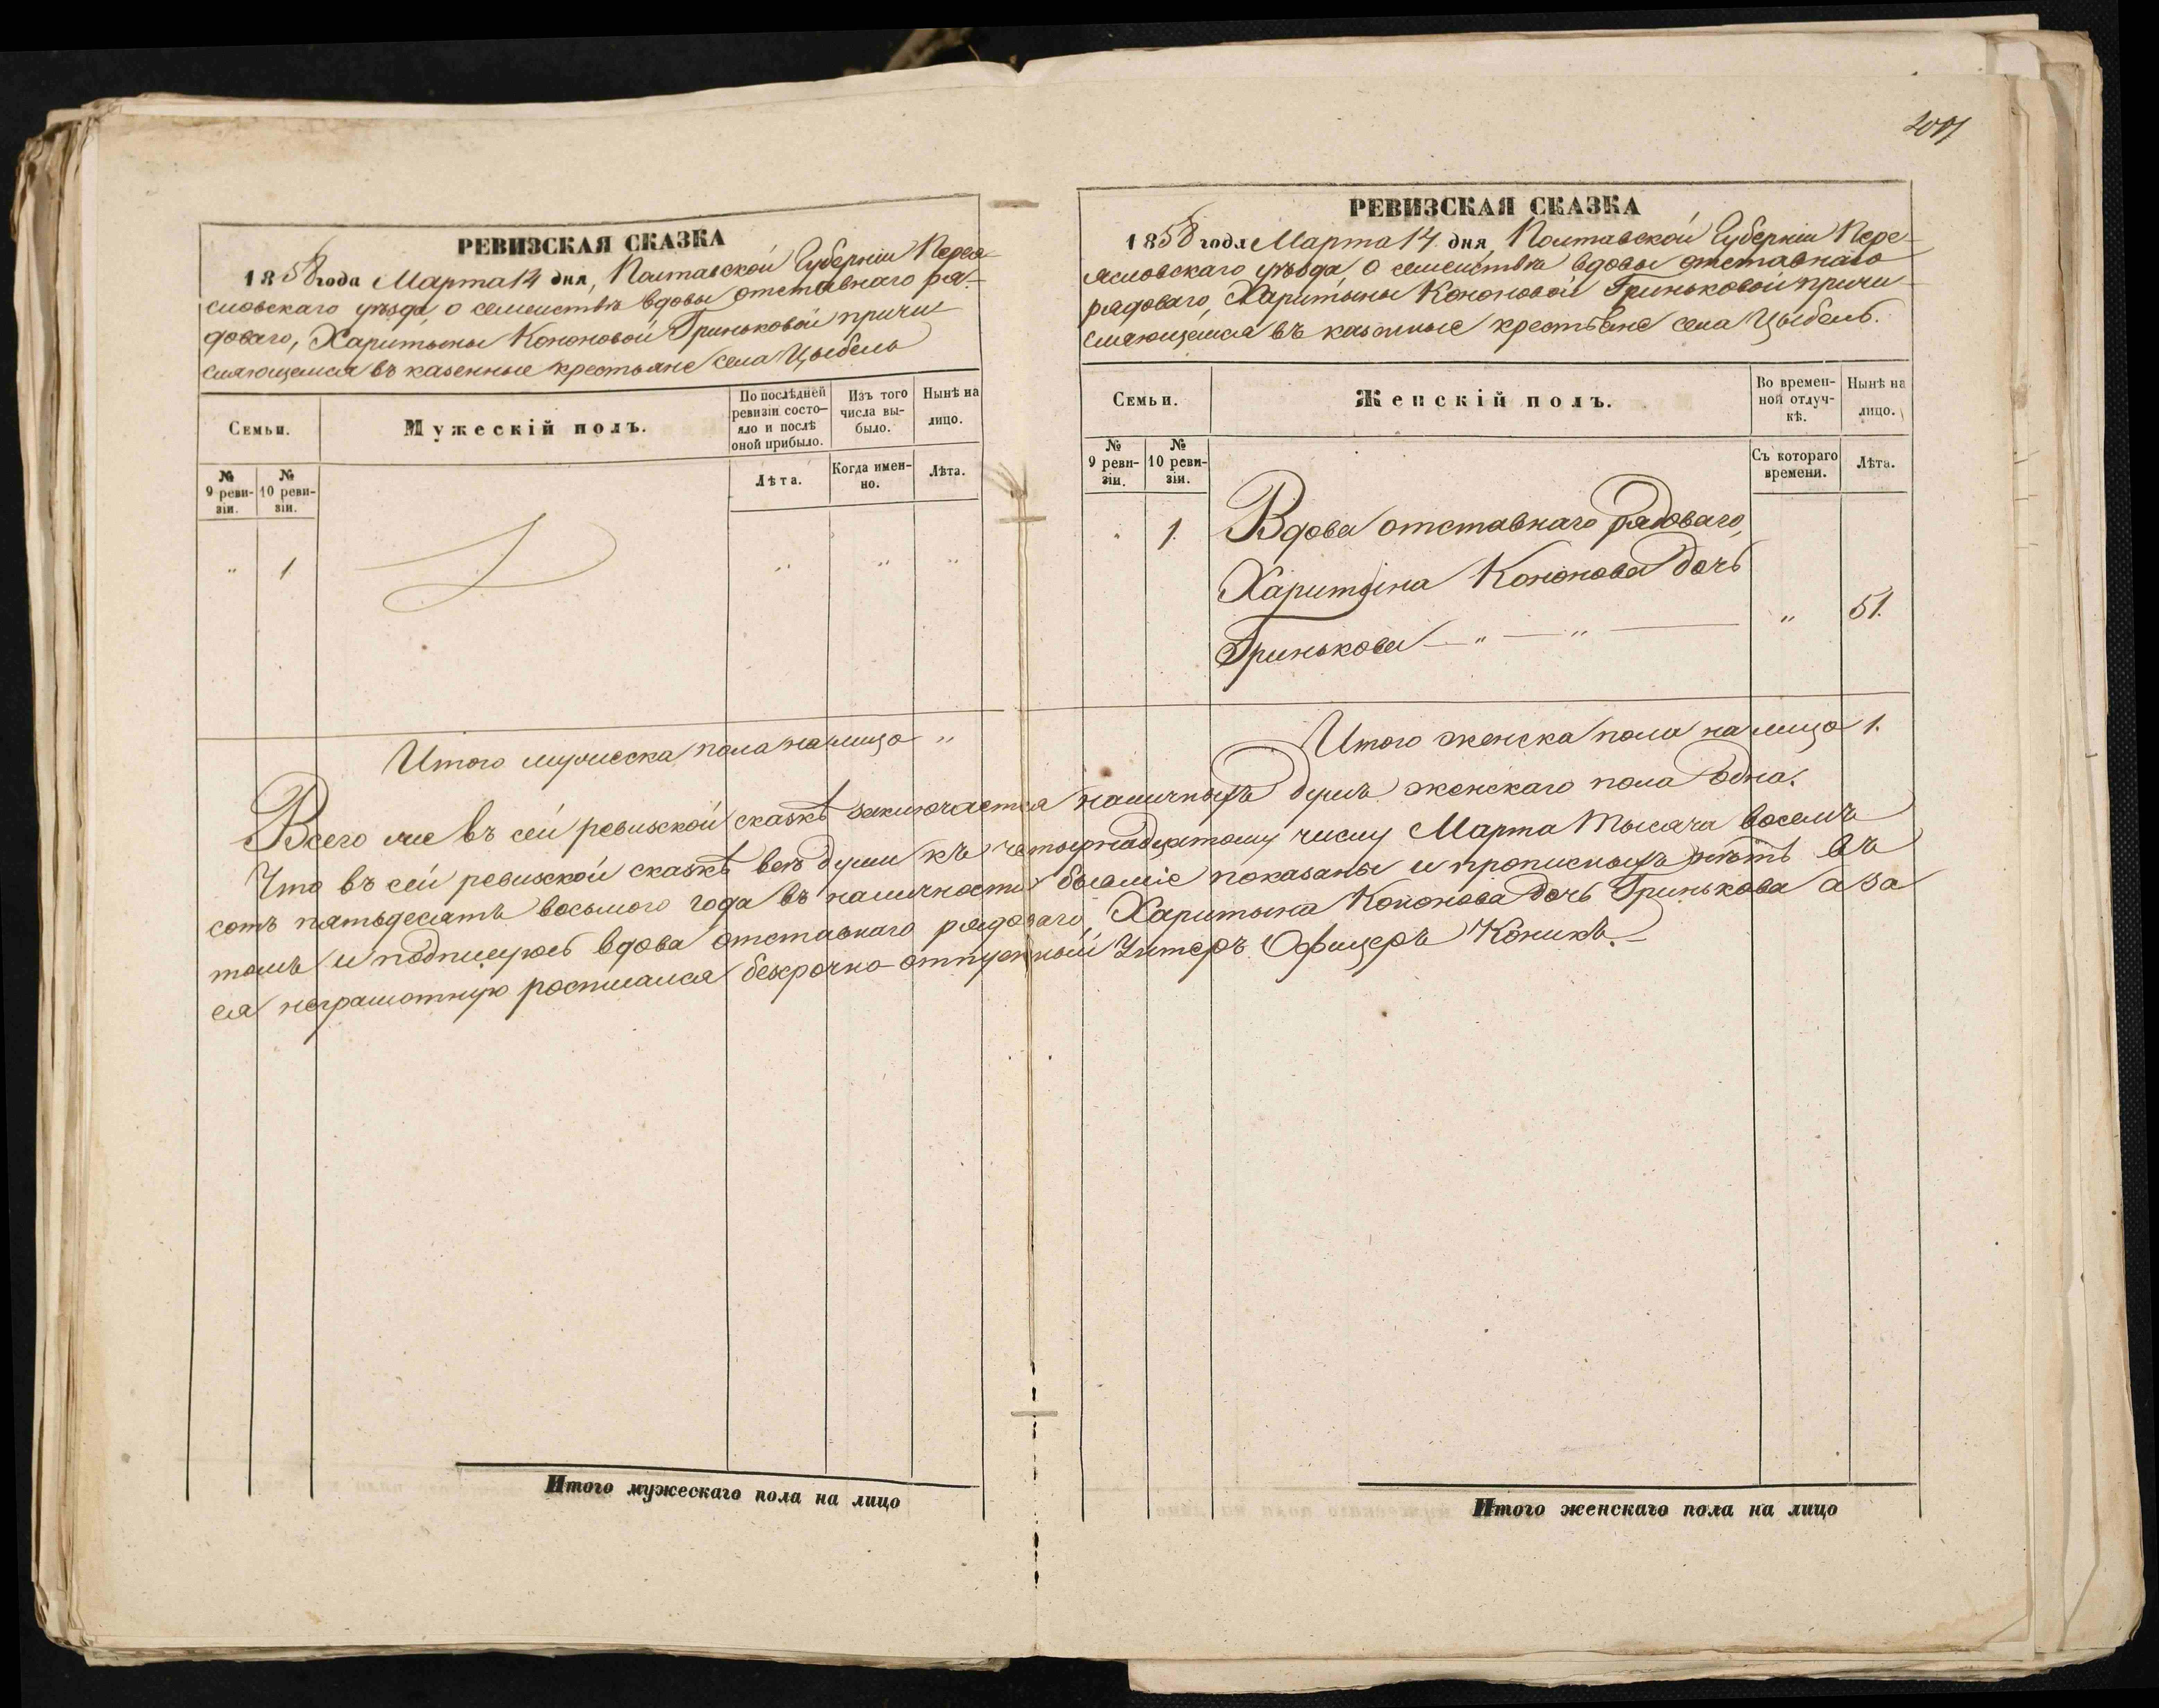 РЕВИЗСКАЯ СКАЗКА
1858 года Марта 14 дня, Полтавской Губерніи Перея-
словскаго уѣзда, о семействѣ вдовы отставнаго ря-
доваго, Харитыны Кононовой Гриньковой причи-
сляющемся въ казенные крестьяне села Цыбель
Семьи.
Мужескій полъ.
По послѣдней ревизіи состо-
яло и послѣ оной прибыло.
Изъ того числа вы-
было.
Нынѣ на лицо.
№ 9 реви-
зіи.
№ 10 реви-
зіи.
Лѣта.
Когда имен-
но.
Лѣта.
" 1 " " "
Итого мужеска пола налицо "
РЕВИЗСКАЯ СКАЗКА
1858 года Марта 14 дня, Полтавской Губерніи Пере-
ясловскаго уѣзда, о семействѣ вдовы отставнаго
рядоваго, Харитыны Кононовой Гриньковой причи-
сляющемся въ казенные крестьяне села Цыбель.
Семьи.
Женскій полъ.
Во времен-
ной отлуч-
кѣ.
Нынѣ на лицо.
№ 9 реви-
зіи.
№ 10 реви-
зіи.
Съ котораго времени.
Лѣта.
" 1. Вдова отставнаго рядоваго,
Харитына Кононова дочь
Гринькова — " — " — " 51.
Итого женска пола налицо 1.
Всего же въ сей ревизской сказкѣ заключается наличныхъ душъ женскаго пола одна.
Что въ сей ревизской сказкѣ всѣ души къ четырнадцатому числу Марта Тысяча восемь
сотъ пятьдесятъ восьмого года въ наличности бывшіе показаны и прописныхъ нѣтъ въ
томъ и подпишуюсь вдова отставнаго рядоваго, Харитына Кононова дочь Гринькова а за
ея неграмотную росписался безсрочно-отпускный Унтеръ Офицеръ Коникъ.
Итого мужескаго пола на лицо
Итого женскаго пола на лицо